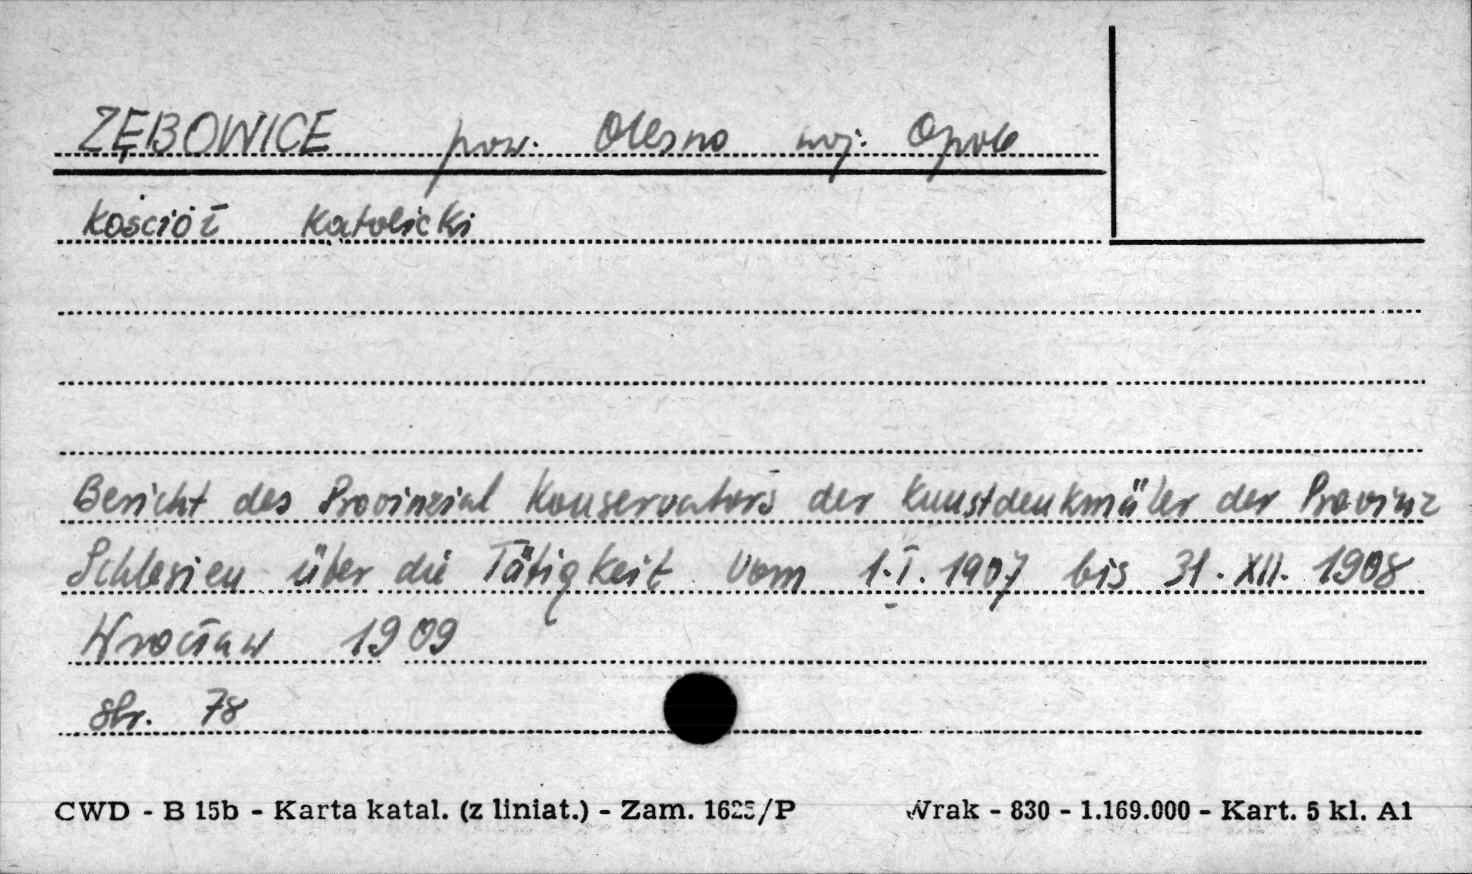 ZĘBOWICE pow. Olesno woj. Opole
kościół katolicki
Bericht des Provinzial Konservators der Kunstdenkmäler der Provinz
Schlesien über die Tätigkeit vom 1.I.1907 bis 31.XII.1908
Wrocław 1909
str. 78
CWD - B 15b - Karta katal. (z liniat.) - Zam. 1625/P Wrak - 830 - 1.169.000 - Kart. 5 kl. A1